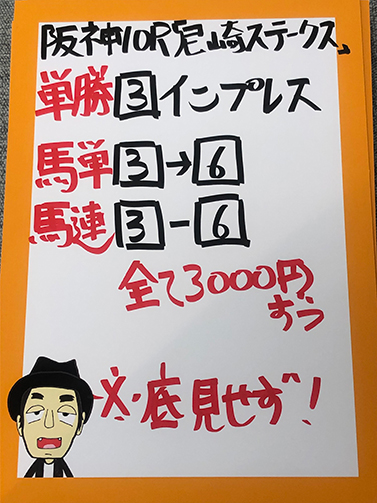 阪神10R「宮崎ステークス」
単勝 3 インプレス
馬単 3→6
馬連 3-6
全て3000円
ずつ
※底見せず!